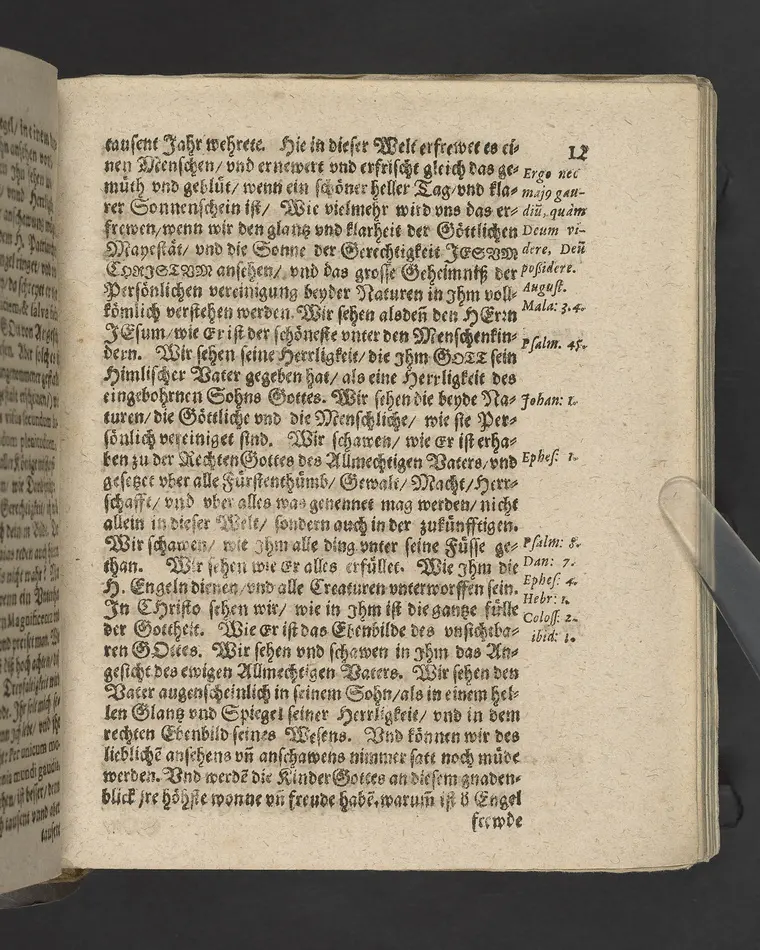 12
tausent Jahr wehrete. Hie in dieser Welt erfrewet es ei-
nen Menschen/ vnd ernewert vnd erfrischt gleich das ge-
müth vnd geblüt/ wenn ein schöner heller Tag/ vnd kla-
rer Sonnenschein ist/ Wie vielmehr wird vns das er-
frewen/ wenn wir den glantz vnd klarheit der Göttlichen
Mayestät/ vnd die Sonne der Gerechtigkeit JESVM
CHRISTVM ansehen/ vnd das grosse Geheimniß der
Persönlichen vereinigung beyder Naturen in Jhm voll-
kömlich verstehen werden. Wir sehen alsdeñ den HErrn
JEsum/ wie Er ist der schöneste vnter den Menschenkin-
dern. Wir sehen seine Herrligkeit/ die Jhm GOTT sein
Himlischer Vater gegeben hat/ als eine Herrligkeit des
eingebohrnen Sohns Gottes. Wir sehen die beyde Na-
turen/ die Göttliche vnd die Menschliche/ wie sie Per-
sönlich vereiniget sind. Wir schawen/ wie Er ist erha-
ben zu der Rechten Gottes des Allmechtigen Vaters/ vnd
gesetzet vber alle Fürstenthümb/ Gewalt/ Macht/ Herr-
schafft/ vnd vber alles was genennet mag werden/ nicht
allein in dieser Welt/ sondern auch in der zukünfftigen.
Wir schawen/ wie Jhm alle ding vnter seine Füsse ge-
than. Wir sehen wie Er alles erfüllet. Wie Jhm die
H. Engeln dienen/ vnd alle Creaturen vnterworffen sein.
In CHristo sehen wir/ wie in Jhm ist die gantze fülle
der Gottheit. Wie Er ist das Ebenbilde des vnsichtba-
ren GOttes. Wir sehen vnd schawen in Jhm das An-
gesicht des ewigen Allmechtigen Vaters. Wir sehen den
Vater augenscheinlich in seinem Sohn/ als in einem hel-
len Glantz vnd Spiegel seiner Herrligkeit/ vnd in dem
rechten Ebenbild seines Wesens. Vnd können wir des
lieblichẽ ansehens vñ anschawens nimmer satt noch müde
werden. Vnd werdẽ die Kinder Gottes an diesem gnaden-
blick jre höhste wonne vñ freude habẽ, warum̃ ist d Engel
frewde
Ergo nec
majo gau-
diũ, quàm
Deum vi-
dere, Deũ
poßidere.
August.
Mala: 3. 4.
Psalm. 45.
Johan: 1.
Ephes: 1.
Psalm: 8.
Dan: 7.
Ephes: 4.
Hebr: 1.
Coloss: 2.
ibid: 1.